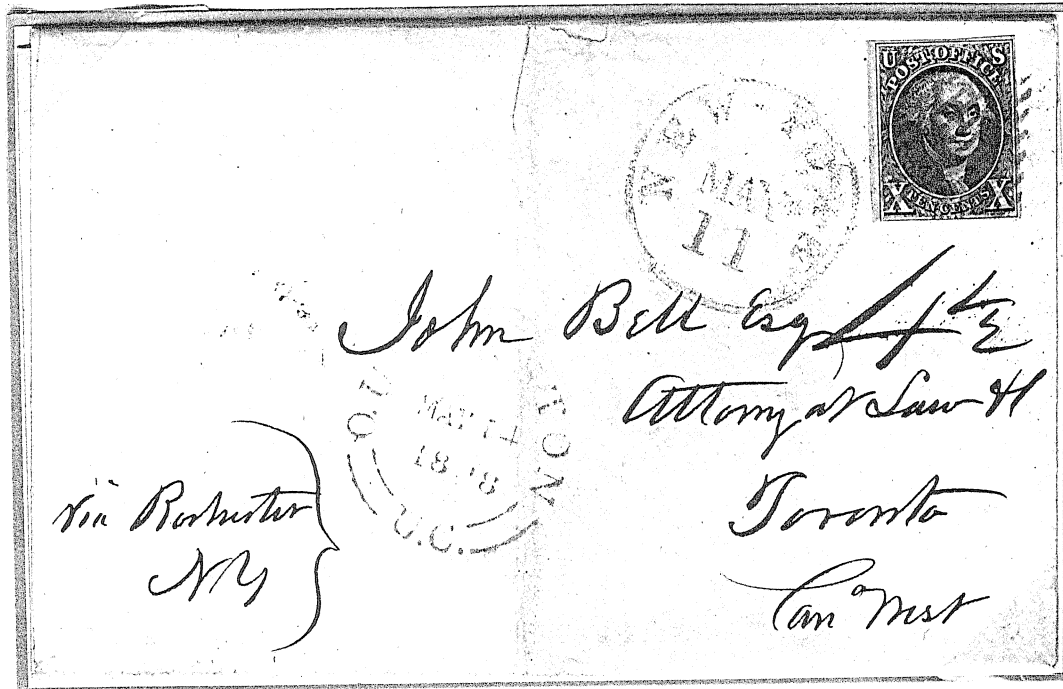 U S
POST OFFICE
X TEN CENTS X
NEW-YORK
MAY
11
John Bell Esq
Attorny at Law
Toronto
Can West
MAY 14
U.C.
via Rochester
NY